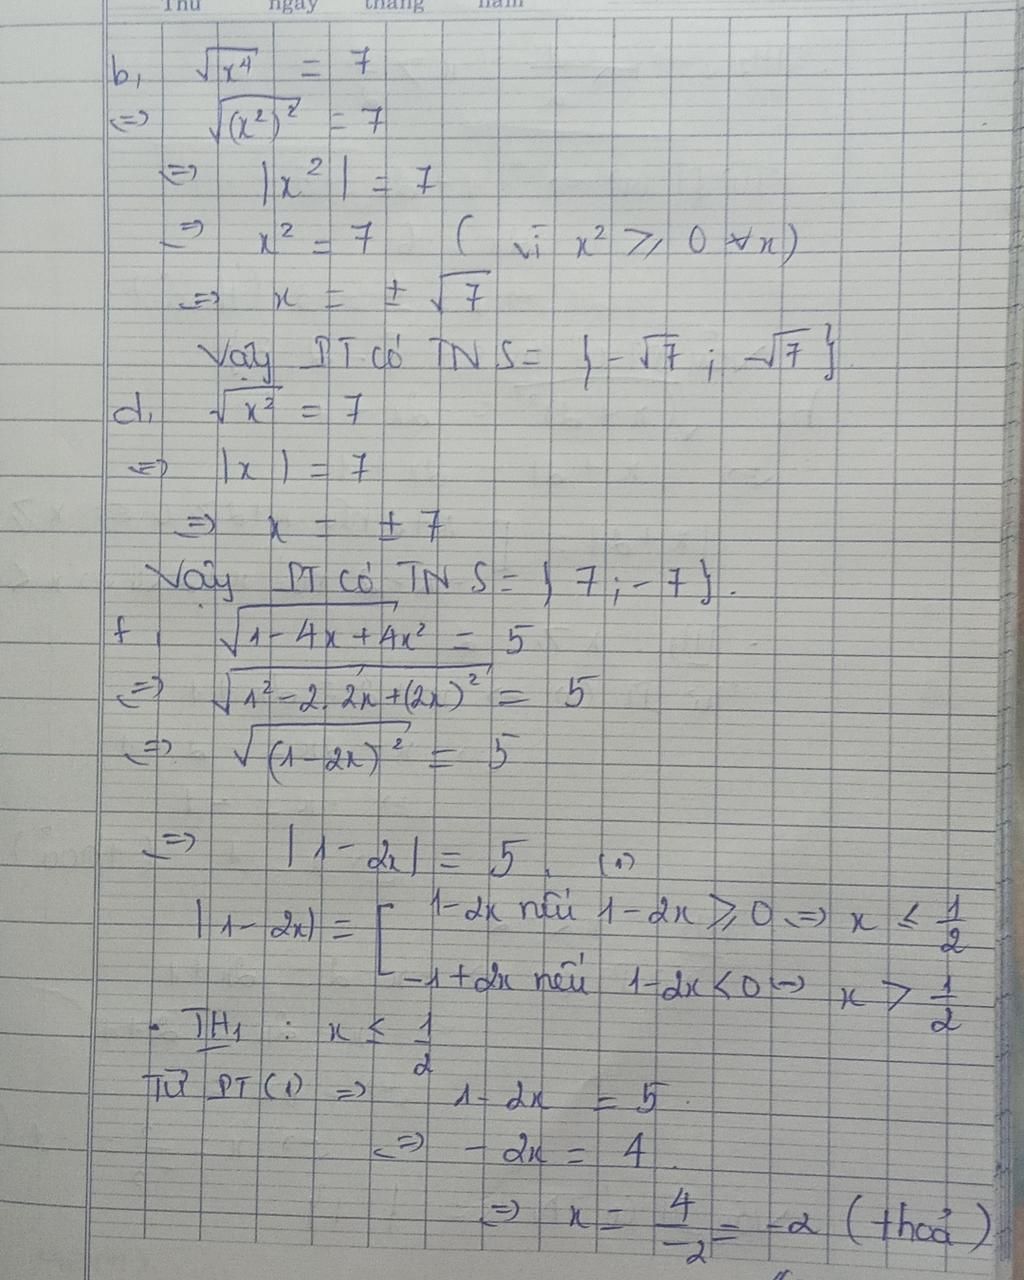 Thứ ngày tháng năm
b, √x⁴ = 7
⇔ √(x²)² = 7
⇔ |x²| = 7
⇔ x² = 7 ( vì x² ⩾ 0 ∀x)
⇔ x = ± √7
Vậy PT có TN S = {-√7 ; -√7}
d, √x² = 7
⇔ |x| = 7
⇔ x = ± 7
Vậy PT có TN S = {7 ; -7}.
f, √1 - 4x + 4x² = 5
⇔ √1² - 2. 2x + (2x)² = 5
⇔ √(1 - 2x)² = 5
⇔ |1 - 2x| = 5. (1)
|1 - 2x| = [ 1 - 2x nếu 1 - 2x ⩾ 0 ⇔ x ≤ 1/2
-1 + 2x nếu 1 - 2x < 0 ⇔ x > 1/2
• TH₁ : x ≤ 1/2
Từ PT (1) ⇒ 1 - 2x = 5
⇔ - 2x = 4
⇔ x = 4/-2 = -2 (thoả)